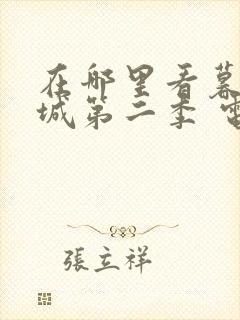 在哪里看暮
城第二季
張立祥